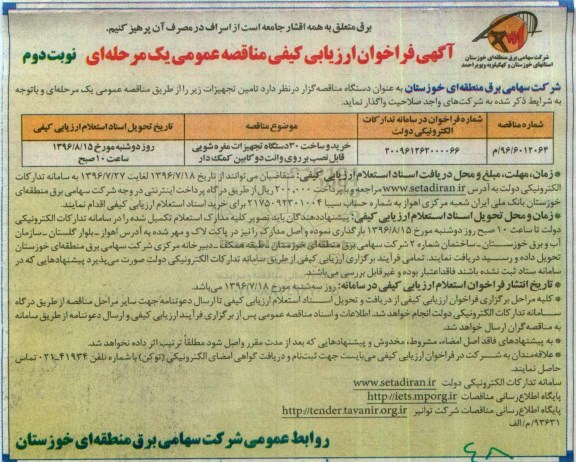 برق متعلق به همه اقشار جامعه است از اسراف در مصرف آن پرهیز کنیم.
شرکت سهامی برق منطقه‌ای خوزستان
استانهای خوزستان و کهگیلویه و بویراحمد
آگهی فراخوان ارزیابی کیفی مناقصه عمومی یک مرحله‌ای نوبت دوم
شرکت سهامی برق منطقه‌ای خوزستان به عنوان دستگاه مناقصه‌گزار در نظر دارد تامین تجهیزات زیر را از طریق مناقصه عمومی یک مرحله‌ای و باتوجه
به شرایط ذکر شده به شرکت‌های واجد صلاحیت واگذار نماید.
شماره مناقصه
شماره فراخوان در سامانه تدارکات الکترونیکی دولت
موضوع مناقصه
تاریخ تحویل اسناد استعلام ارزیابی کیفی
۹۶/۶۰۱۲۰۶۴/م
۲۰۰۹۶۱۲۶۲۰۰۰۰۶۶
خرید و ساخت ۳۰ دستگاه تجهیزات مقره شویی
قابل نصب بر روی وانت دو کابین کمک دار
روز دوشنبه مورخ ۱۳۹۶/۸/۱۵
ساعت ۱۰ صبح
* زمان، مهلت، مبلغ و محل دریافت اسناد استعلام ارزیابی کیفی: متقاضیان می توانند از تاریخ ۱۳۹۶/۷/۱۸ لغایت ۱۳۹۶/۷/۲۷ به سامانه تدارکات
الکترونیکی دولت به آدرس www.setadiran.ir مراجعه و با پرداخت ۲۰۰,۰۰۰ ریال از طریق درگاه پرداخت اینترنتی در وجه شرکت سهامی برق منطقه‌ای
خوزستان بانک ملی ایران شعبه مرکزی اهواز به شماره حساب سیبا ۲۱۷۵۰۹۲۳۰۱۰۰۴ برای خرید اسناد استعلام ارزیابی کیفی اقدام نمایند.
* زمان و محل تحویل اسناد استعلام ارزیابی کیفی: پیشنهاددهندگان باید تصویر کلیه مدارک استعلام تکمیل شده را در سامانه تدارکات الکترونیکی
دولت تا ساعت ۱۰ صبح روز دوشنبه مورخ ۱۳۹۶/۸/۱۵ بارگذاری نموده و اصل مدارک را نیز در پاکت لاک و مهر شده به آدرس اهواز ـ بلوار گلستان ـ سازمان
آب و برق خوزستان ـ ساختمان شماره ۲ شرکت سهامی برق منطقه‌ای خوزستان طبقه همکف ـ دبیرخانه مرکزی شرکت سهامی برق منطقه‌ای خوزستان
تحویل داده و رسید دریافت نمایند. تمامی فرآیند برگزاری ارزیابی کیفی از طریق سامانه تدارکات الکترونیکی دولت صورت می‌پذیرد پیشنهادهایی که در
سامانه ستاد ثبت نشده باشند فاقد اعتبار بوده و غیر قابل بررسی می‌باشند.
* تاریخ انتشار فراخوان استعلام ارزیابی کیفی در سامانه: روز سه‌شنبه مورخ ۱۳۹۶/۷/۱۸ می‌باشد.
* کلیه مراحل برگزاری فراخوان ارزیابی کیفی از دریافت و تحویل اسناد استعلام ارزیابی کیفی تا ارسال دعوتنامه جهت سایر مراحل مناقصه از طریق درگاه
سامانه تدارکات الکترونیکی دولت انجام خواهد شد. اطلاعات و اسناد مناقصه عمومی پس از برگزاری فرآیند ارزیابی کیفی و ارسال دعوتنامه از طریق سامانه
به مناقصه گران ارسال خواهد شد.
* به پیشنهادهای فاقد امضاء، مشروط، مخدوش و پیشنهادهایی که بعد از مدت مقرر واصل شود مطلقاً ترتیب اثر داده نخواهد شد.
* علاقه‌مندان به شرکت در فراخوان ارزیابی کیفی می‌بایست جهت ثبت‌نام و دریافت گواهی امضای الکترونیکی (توکن) با شماره تلفن ۴۱۹۳۴-۰۲۱ تماس
حاصل نمایند.
سامانه تدارکات الکترونیکی دولت www.setadiran.ir
پایگاه اطلاع رسانی مناقصات http://iets.mporg.ir
پایگاه اطلاع رسانی مناقصات شرکت توانیر http://tender.tavanir.org.ir
۹۳۶۳۱/م/الف
روابط عمومی شرکت سهامی برق منطقه‌ای خوزستان